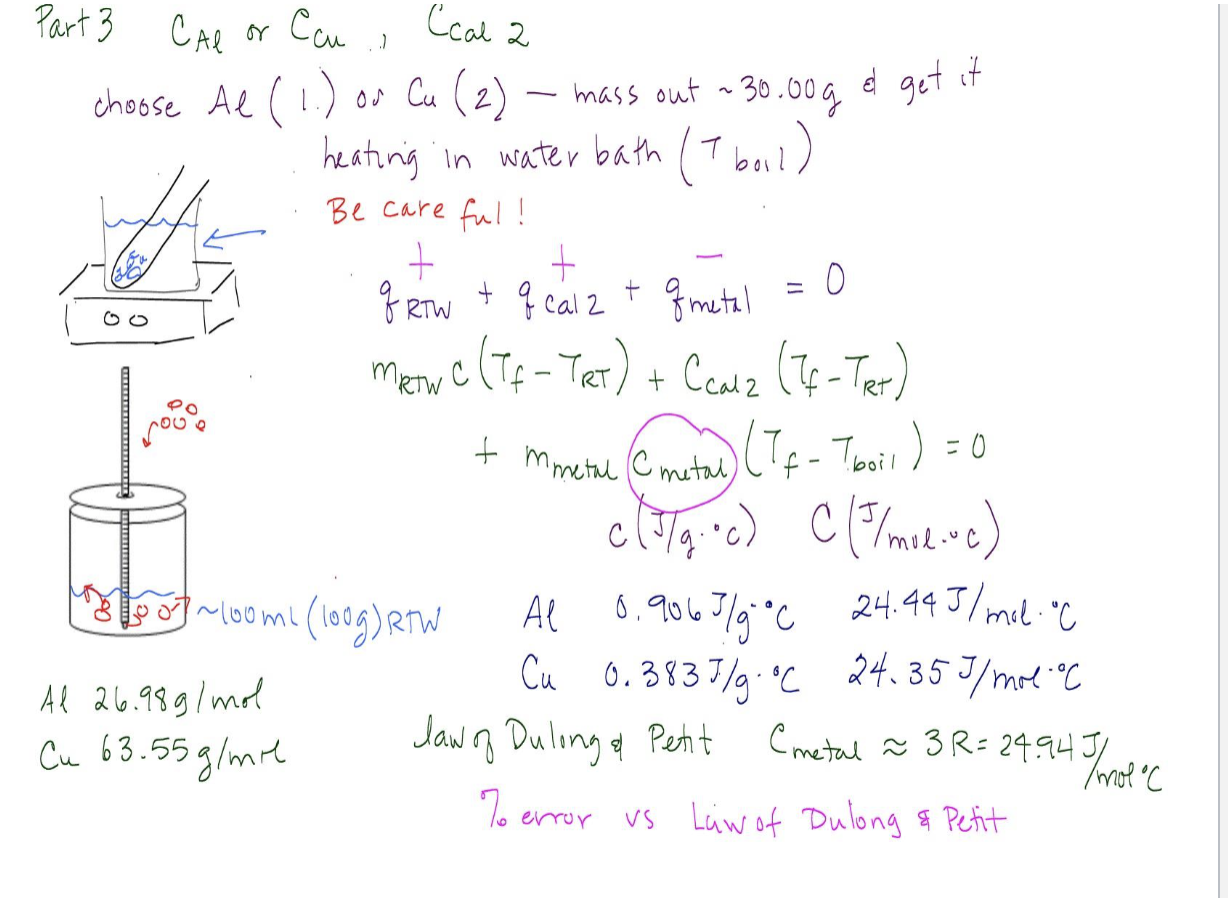 Part 3 C_Al or C_Cu , C_cal 2
choose Al (1.) or Cu (2) — mass out ~30.00g & get it
heating in water bath (T boil)
Be careful!
+ + −
q RTW + q cal 2 + q metal = 0
m_RTW c (T_f − T_RT) + C_cal 2 (T_f − T_RT)
+ m_metal c_metal (T_f − T_boil) = 0
c (J/g·°C) C (J/mol·°C)
~100mL (100g) RTW
Al 0.906 J/g·°C 24.44 J/mol·°C
Cu 0.383 J/g·°C 24.35 J/mol·°C
Al 26.98 g/mol
Cu 63.55 g/mol
law of Dulong & Petit C_metal ≈ 3R = 24.94 J/mol°C
% error vs Law of Dulong & Petit